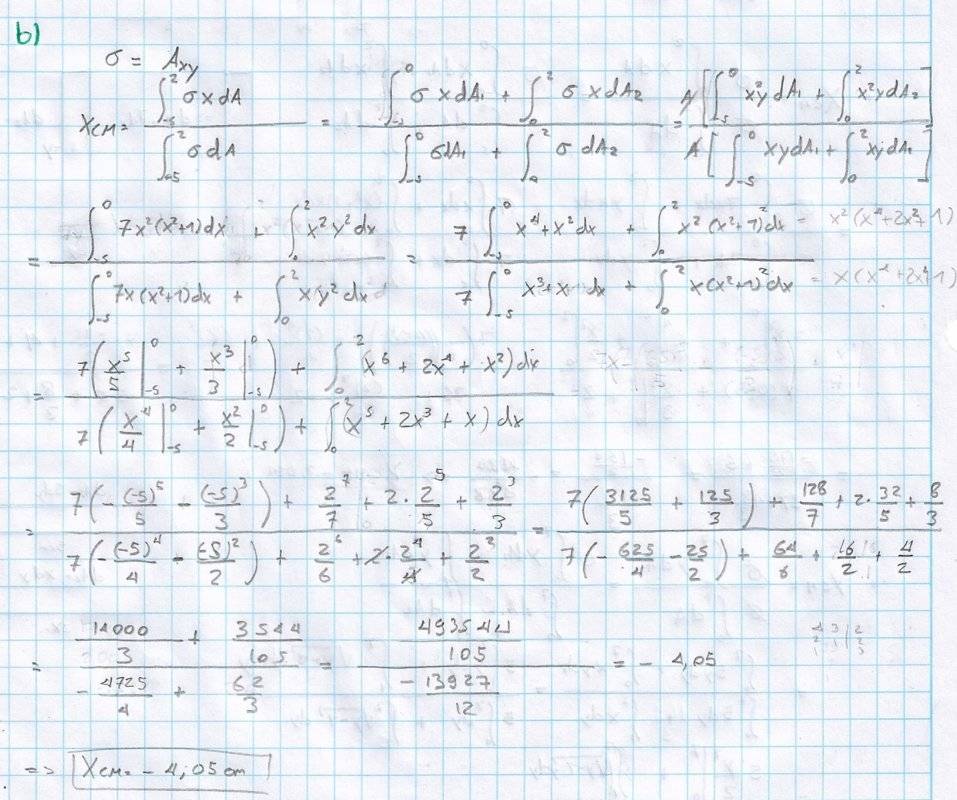 b)
σ = Axy
Xcm = ∫₋₅² σ x dA / ∫₋₅² σ dA = (∫₋₅⁰ σ x dA₁ + ∫₀² σ x dA₂) / (∫₋₅⁰ σ dA₁ + ∫₀² σ dA₂) = A[∫₋₅⁰ x²y dA₁ + ∫₀² x²y dA₂] / A[∫₋₅⁰ xy dA₁ + ∫₀² xy dA₂]
= (∫₋₅⁰ 7x²(x²+1)dx + ∫₀² x²y²dx) / (∫₋₅⁰ 7x(x²+1)dx + ∫₀² xy²dx) = (7∫₋₅⁰ x⁴+x²dx + ∫₀² x²(x²+1)²dx) / (7∫₋₅⁰ x³+x dx + ∫₀² x(x²+1)²dx) = x²(x⁴+2x²+1) = x(x⁴+2x²+1)
= (7(x⁵/5|₋₅⁰ + x³/3|₋₅⁰) + ∫₀²(x⁶+2x⁴+x²)dx) / (7(x⁴/4|₋₅⁰ + x²/2|₋₅⁰) + ∫₀²(x⁵+2x³+x)dx)
= (7(-(-5)⁵/5 - (-5)³/3) + 2⁷/7 + 2·2⁵/5 + 2³/3) / (7(-(-5)⁴/4 - (-5)²/2) + 2⁶/6 + 2·2⁴/4 + 2²/2) = (7(3125/5 + 125/3) + 128/7 + 2·32/5 + 8/3) / (7(-625/4 - 25/2) + 64/6 + 16/2 + 4/2)
= (14000/3 + 3544/105) / (-4725/4 + 62/3) = (493544/105) / (-13927/12) = - 4,05
=> Xcm = - 4,05 cm